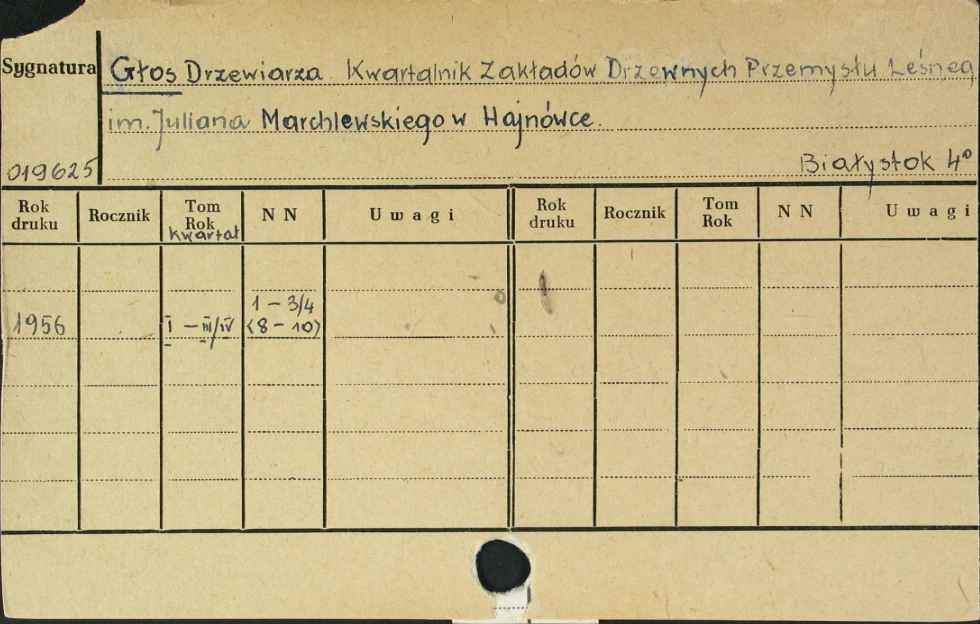 Sygnatura Głos Drzewiarza. Kwartalnik Zakładów Drzewnych Przemysłu Leśneg
im. Juliana Marchlewskiego w Hajnówce.
019625 Białystok 4°
Rok druku Rocznik Tom Rok kwartał N N Uwagi Rok druku Rocznik Tom Rok N N Uwagi
1 - 3/4
1956 I - III/IV (8 - 10)